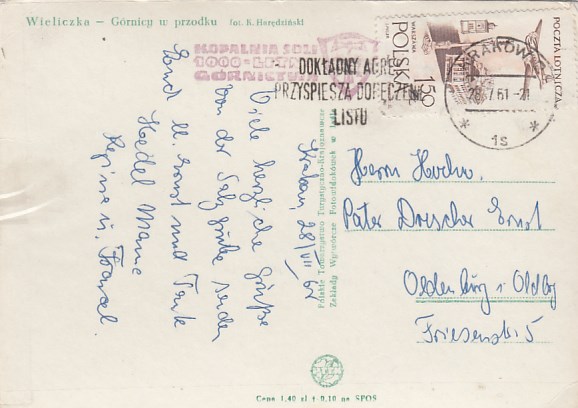 Wieliczka – Górnicy w przodku fot. K. Horędziński
KOPALNIA SOLI
1000-LECIE
GÓRNICTWA
DOKŁADNY ADRES
PRZYSPIESZA DORĘCZENIE
LISTU
POCZTA LOTNICZA
WARSZAWA
POLSKA 1,50
KRAKÓW 2
28.7.61-21
* 1s *
Krakau, 28/VII 61
Viele herzliche Grüße
von der Salzgrube senden
Ernst und Tante
Hedel Mama
Regine u. Franzel.
Polskie Towarzystwo Turystyczno-Krajoznawcze
Zakłady Wytwórcze Fotowidokówek
Herrn Hochw.
Pater Drescher Ernst
Oldenburg i Oldbg
Friesenstr. 5
Cena 1,40 zł + 0,10 na SFOS